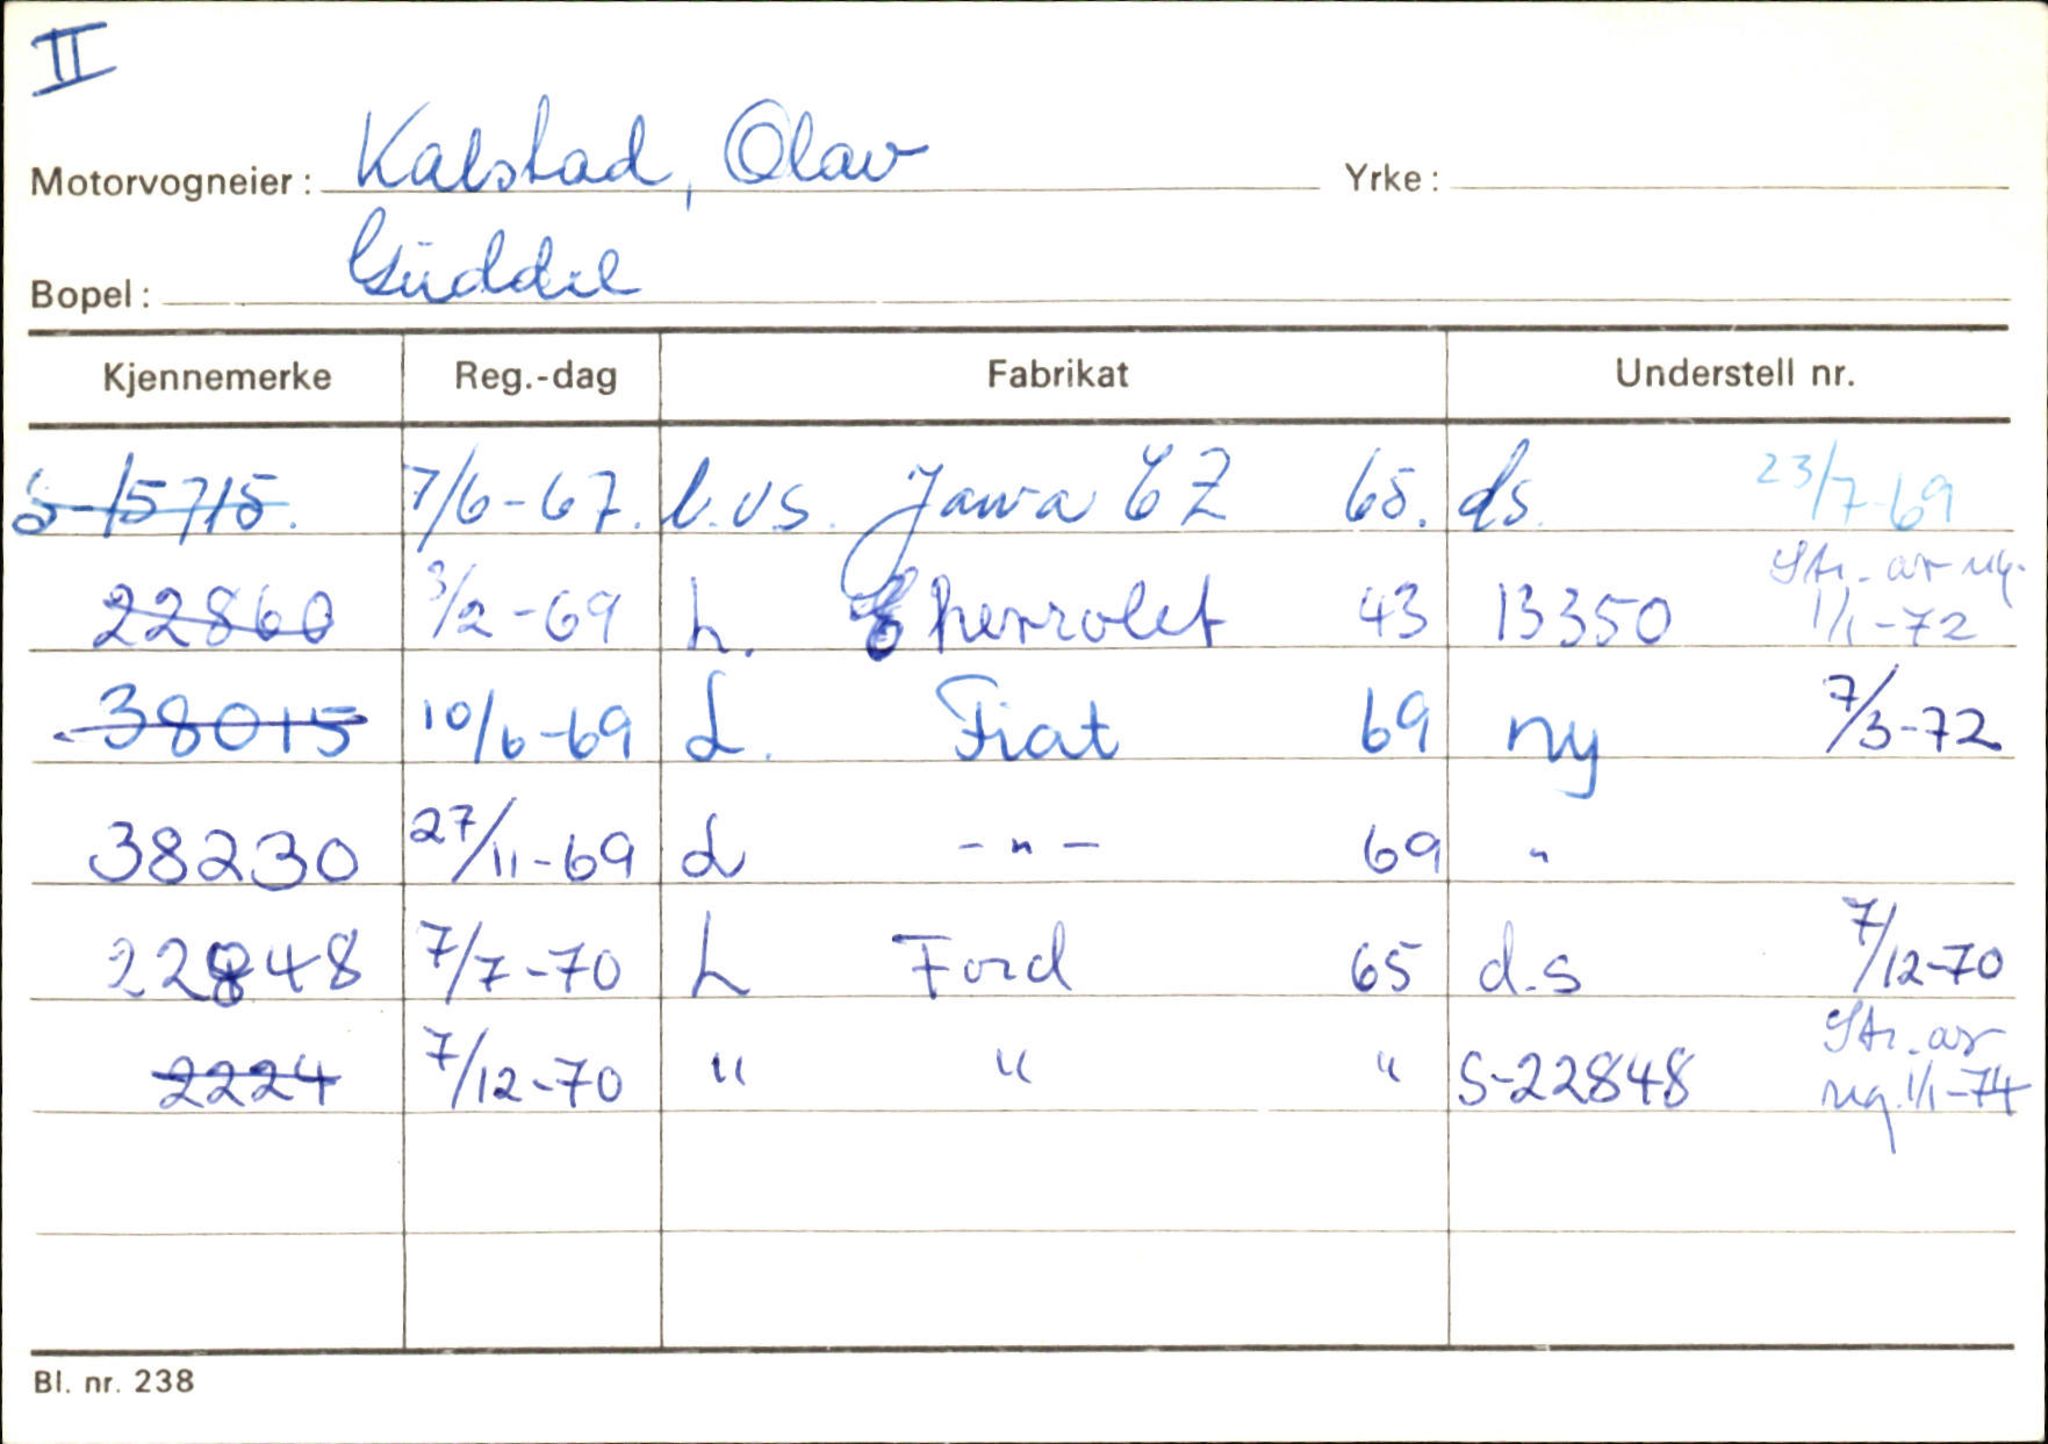 II
Motorvogneier: Kalstad, Olav Yrke:
Bopel: Güddal
Kjennemerke Reg.-dag Fabrikat Understell nr.
S-15715. 7/6-67. l.vs. Jawa CZ 65. ds. 23/7-69
22860 3/2-69 L. Chevrolet 43 13350 Str. av reg. 1/1-72
38015 10/6-69 d. Fiat 69 ny 7/3-72
38230 27/11-69 d -"- 69 "
22848 7/7-70 L Ford 65 d.s 7/12-70
2224 7/12-70 " " " S-22848 Str. av reg. 1/1-74
Bl. nr. 238